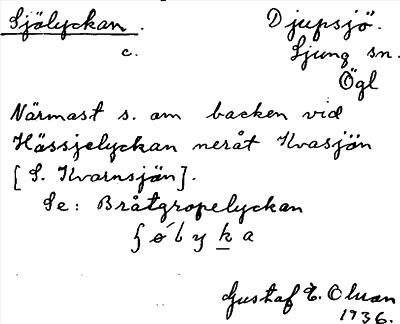 Själyckan. Djupsjö.
c. Ljung sn.
Ögl
Närmast s. om backen vid
Hässjelyckan neråt Kvasjön
[S. Kvarnsjön].
Se: Bråtgropelyckan
Gustaf E. Olsson
1936.